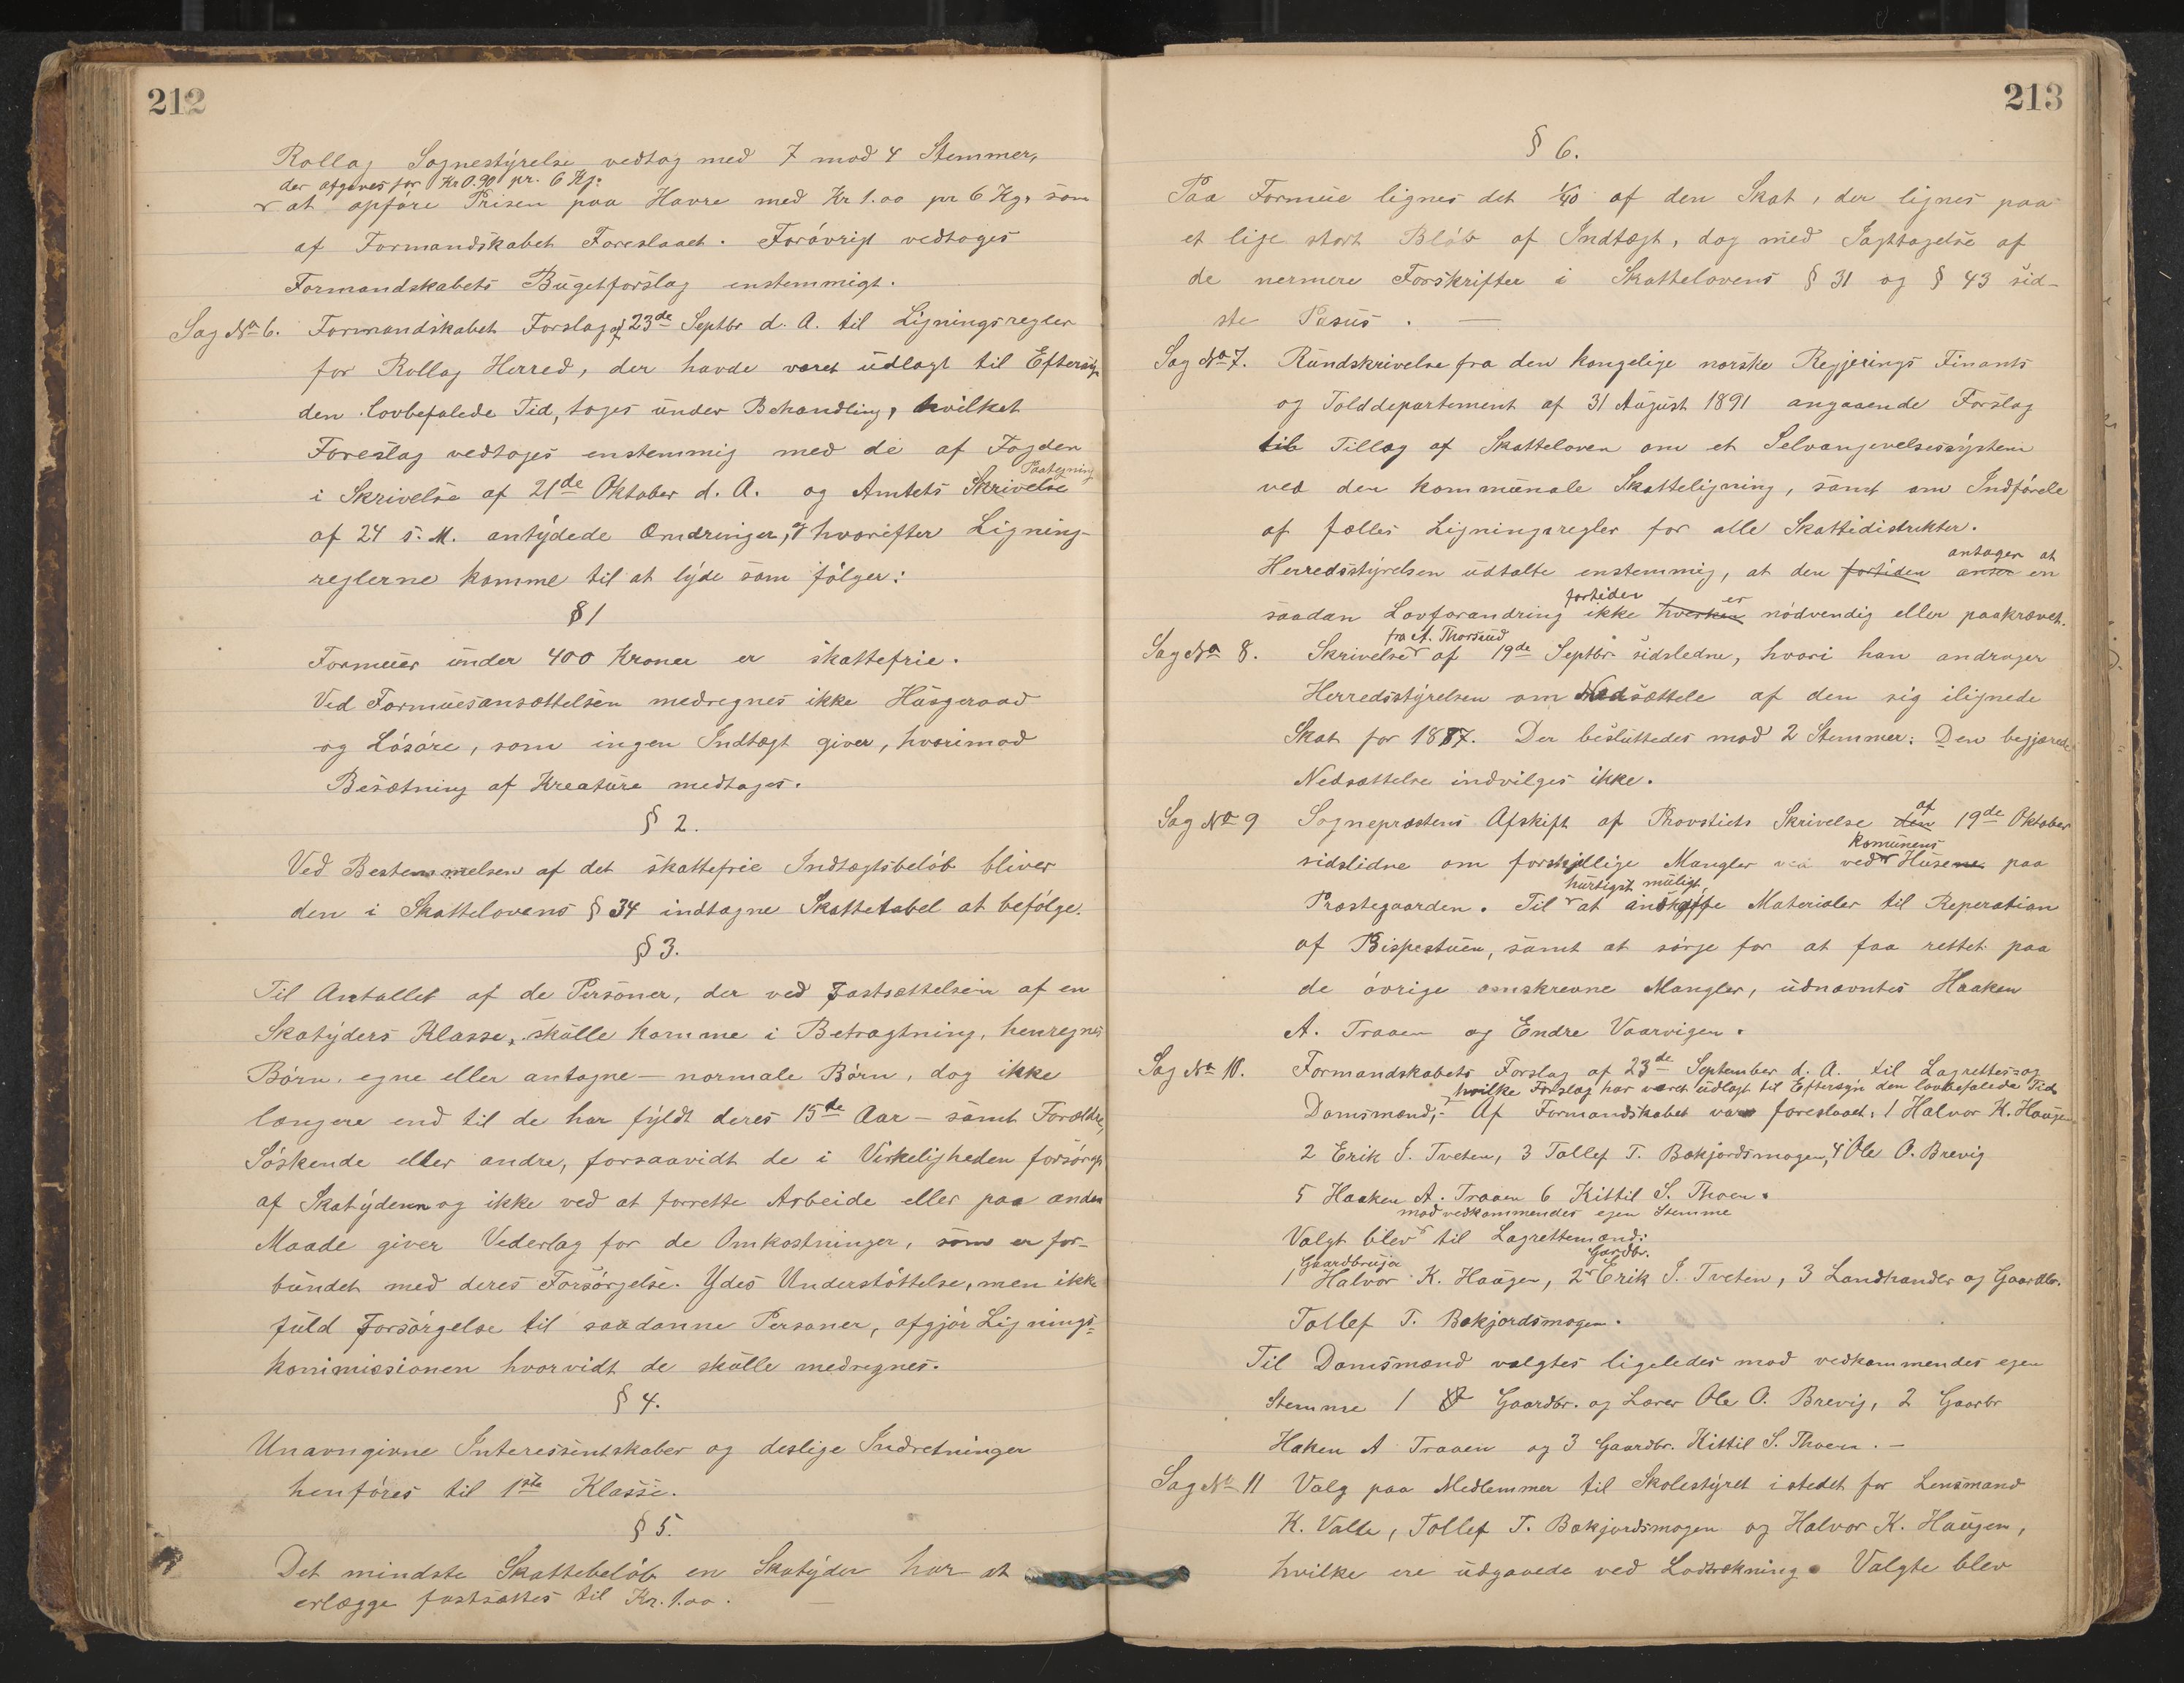 212
Rollag Sognestyrelse vedtog med 7 mod 4 Stemmer,
der afgaves for Kr 0.90 pr. 6 Kg.
at opføre Prisen paa Havre med Kr 1.00 pr 6 Kg. som
af Formandskabet Foreslaaet. Forøvrigt vedtoges
Formandskabets Bugetforslag enstemmigt.
Sag No 6. Formandskabet Forslag af 23de Septbr d. A. til Ligningsregler
for Rollag Herred, der havde været udlagt til Eftersyn
den lovbefalede Tid, toges under Behandling, hvilket
Foreslag vedtoges enstemmig med de af Fogden
Paategning
i Skrivelse af 21de Oktober d. A. og Amtets Skrivelse
af 24 s. M. antydede Ændringer, hvorefter Ligning-
reglerne komme til at lyde som følger:
§ 1
Formuer under 400 Kroner er skattefrie.
Ved Formuesansættelsen medregnes ikke Husgeraad
og Løsøre, som ingen Indtægt giver, hvorimod
Besætning af Kreature medtages.
§ 2.
Ved Bestemmelsen af det skattefrie Indtægtsbeløb bliver
den i Skattelovens § 34 indtagne Skattetabel at befølge.
§ 3.
Til Antallet af de Personer, der ved Fastsættelsen af en
Skatyders Klasse, skulle komme i Betragtning, henregnes
Børn, egne eller antagne — normale Børn, dog ikke
længere end til de har fyldt deres 15de Aar — samt Forældre,
Søskende eller andre, forsaavidt de i Virkeligheden forsørges
af Skatyderen og ikke ved at forrette Arbeide eller paa anden
Maade giver Vederlag for de Omkostninger, som er for-
bundet med deres Forsørgelse. Ydes Understøttelse, men ikke
fuld Forsørgelse til saadanne Personer, afgjør Lignings-
kommissionen hvorvidt de skulle medregnes.
§ 4.
Unavngivne Interessentskaber og deslige Indretninger
henføres til 1ste Klasse.
§ 5.
Det mindste Skattebeløb en Skatyder har at
erlægge fastsættes til Kr. 1.00. —
213
§ 6.
Paa Formue lignes det 1/40 af den Skat, der lignes paa
et lige stort Bløb af Indtægt, dog med Iagttagelse af
de nermere Forskrifter i Skattelovens § 31 og § 43 sid-
ste Pasus. —
Sag No 7. Rundskrivelse fra den kongelige norske Regjerings Finants
og Tolddepartement af 31 August 1891 angaaende Forslag
til Tillæg af Skatteloven om et Selvangivelsessystem
ved den kommunale Skatteligning, samt om Indførele
af fælles Ligningsregler for alle Skattidistrikter.
antager at
Herredsstyrelsen udtalte enstemmig, at den fortiden anser en
fortiden er
saadan Lovforandring ikke hverken nødvendig eller paakrævet.
fra A. Thorsrud
Sag No 8. Skrivelse af 19de Septbr sidsledne, hvori han andrager
Herredsstyrelsen om Nedsættele af den sig ilignede
Skat for 1887. Der besluttedes mod 2 Stemmer: Den begjærede
Nedsættelse indvilges ikke.
af
Sag No 9 Sogneprestens Afskift af Provstiets Skrivelse den 19de Oktober
Komunens
sidslidne om forskjellige Mangler ved Husene paa
hurtigst muligt
Præstegaarden. Til at anskaffe Materialer til Reperation
af Bispestuen, samt at sørge for at faa rettet paa
de øvrige omskrevne Mangler, udnævntes Haaken
A. Traaen og Endre Vaarvigen.
Sag No 10. Formandskabets Forslag af 23de September d. A. til Lagrettes- og
hvilke Forslag har været udlagt til Eftersyn den lovbefalede Tid
Domsmænd,- Af Formandskabet var foreslaaet: 1 Halvor K. Haugen
2 Erik J. Tveten, 3 Tollef T. Bakjordsmogen, 4 Ole O. Brevig
5 Haaken A. Traaen 6 Kittil S. Thoen.
mod vedkommendes egen Stemme
Valgt blev til Lagrettemænd:
Gaardbruger Gardbr.
1 Halvor K. Haugen, 2 Erik J. Tveten, 3 Landhandler og Gaardbr.
Tollef T. Bakjordsmogen.
Til Domsmænd valgtes ligeledes mod vedkommendes egen
Stemme 1 Gaardbr. og Lærer Ole O. Brevig, 2 Gaarbr
Haken A Traaen og 3 Gaardbr. Kittil S. Thoen. —
Sag No 11 Valg paa Medlemmer til Skolestyret istedet for Lensmand
K. Valte, Tollef T. Bakjordsmogen og Halvor K. Haugen,
hvilke ere udgaaede ved Lodtrækning. Valgte blev